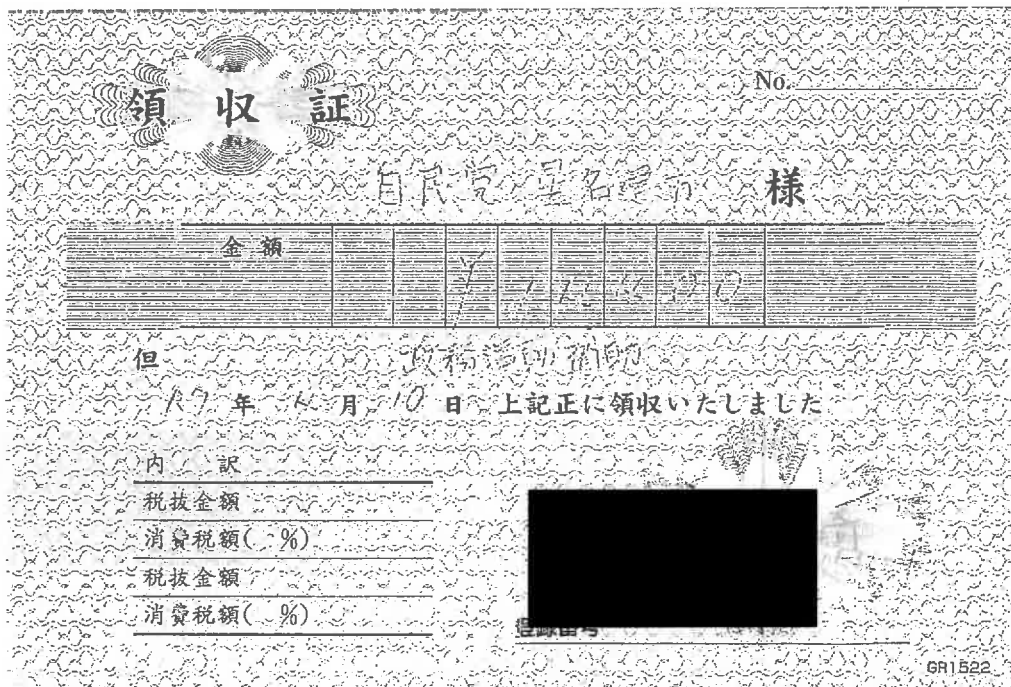 領収証
No.
自民党 星名建市 様
金額
¥
但 政務活動補助
R7年 月10日 上記正に領収いたしました
内 訳
税抜金額
消費税額( %)
税抜金額
消費税額( %)
登録番号
GR1522